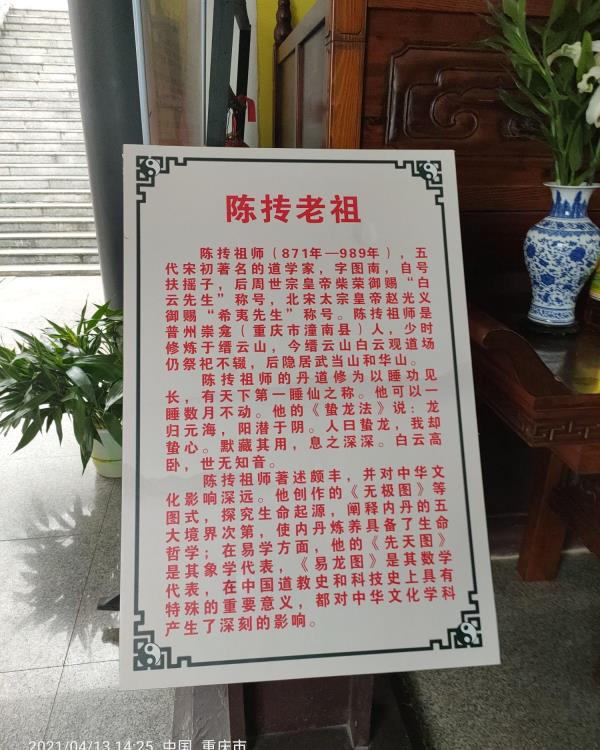 陈抟老祖
陈抟祖师（871年—989年），五
代宋初著名的道学家，字图南，自号
扶摇子，后周世宗皇帝柴荣御赐“白
云先生”称号，北宋太宗皇帝赵光义
御赐“希夷先生”称号。陈抟祖师是
普州崇龛（重庆市潼南县）人，少时
修炼于缙云山，今缙云山白云观道场
仍祭祀不辍，后隐居武当山和华山。
陈抟祖师的丹道修为以睡功见
长，有天下第一睡仙之称。他可以一
睡数月不动。他的《蛰龙法》说：龙
归元海，阳潜于阴。人曰蛰龙，我却
蛰心。默藏其用，息之深深。白云高
卧，世无知音。
陈抟祖师著述颇丰，并对中华文
化影响深远。他创作的《无极图》等
图式，探究生命起源，阐释内丹的五
大境界次第，使内丹炼养具备了生命
哲学；在易学方面，他的《先天图》
是其象学代表，《易龙图》是其数学
代表，在中国道教史和科技史上具有
特殊的重要意义，都对中华文化学科
产生了深刻的影响。
2021/04/13 14:25 中国 重庆市